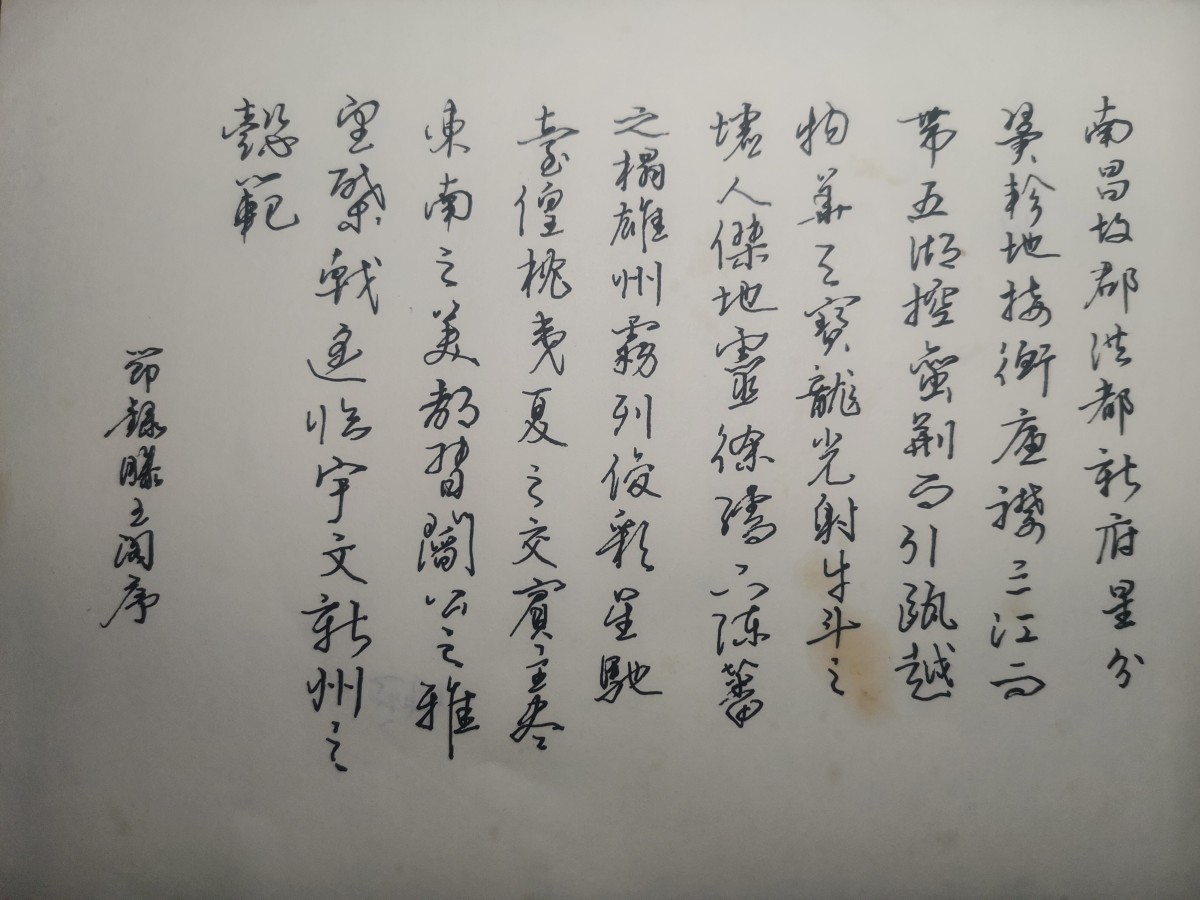 南昌故郡洪都新府星分
翼軫地接衡廬襟三江而
帶五湖控蠻荆而引甌越
物華天寶龍光射牛斗之
墟人傑地靈徐孺下陳蕃
之榻雄州霧列俊彩星馳
臺隍枕夷夏之交賓主尽
東南之美都督閻公之雅
望棨戟遥临宇文新州之
懿範
節録滕王阁序